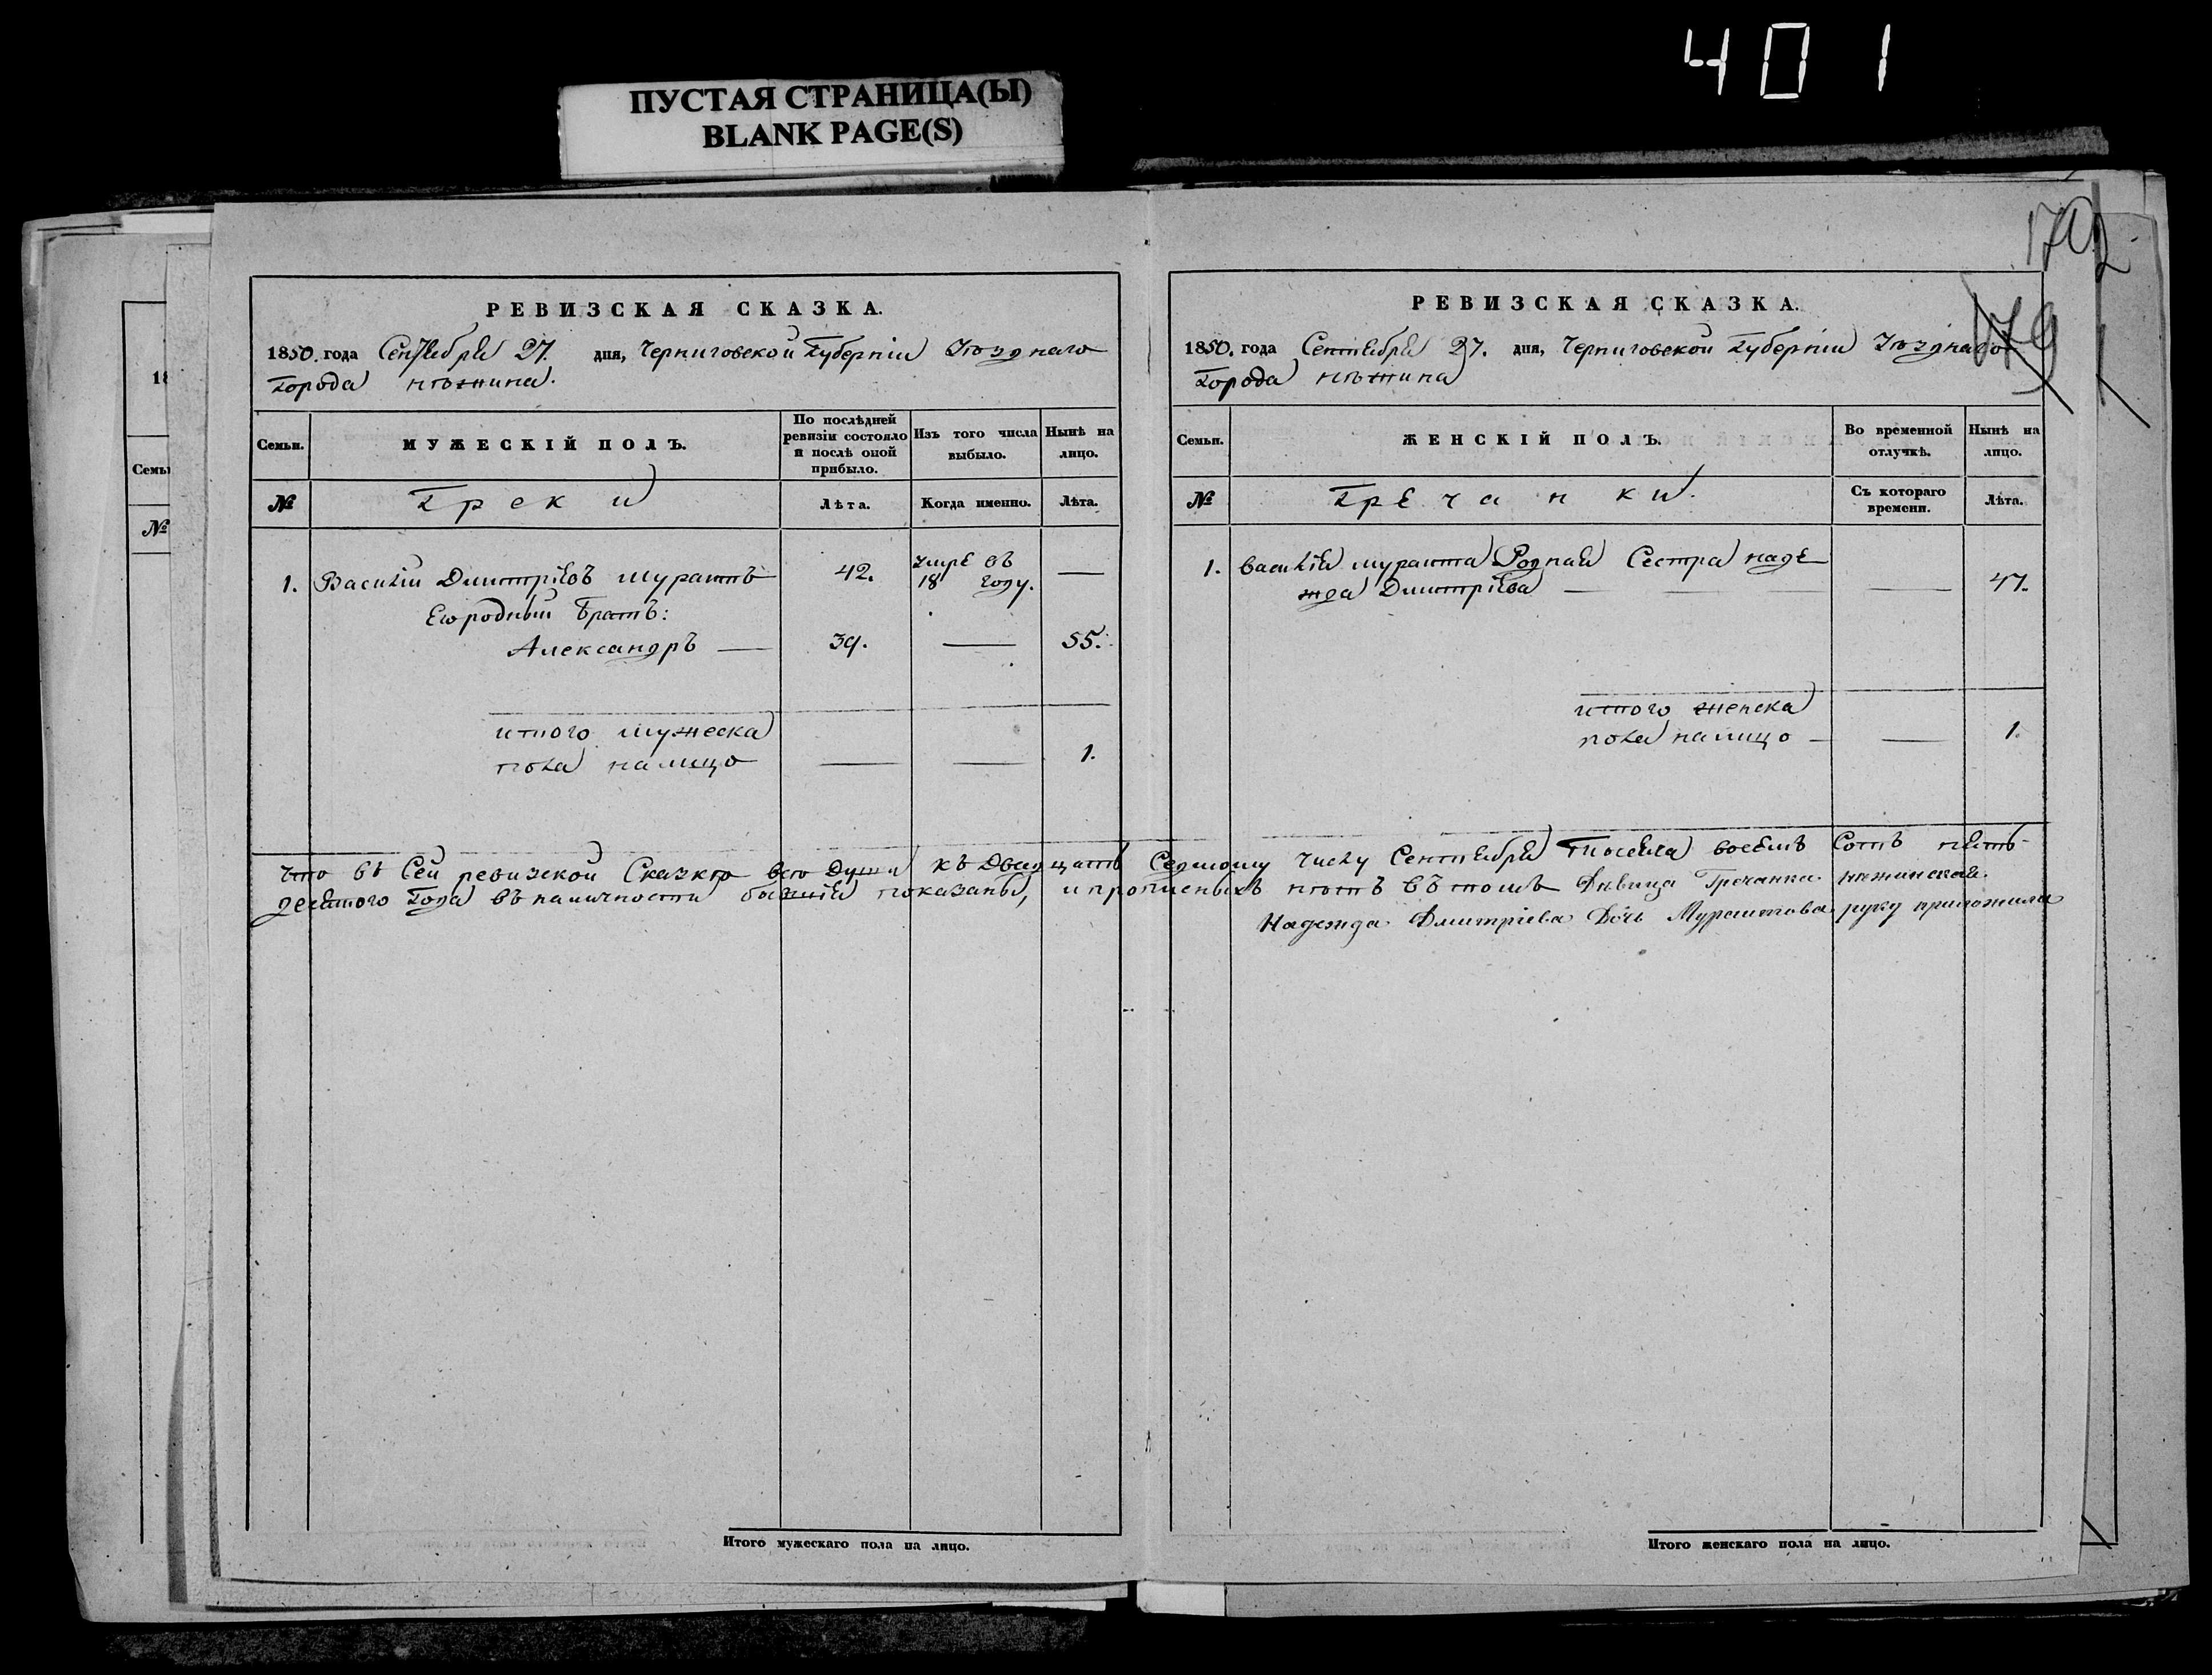 401
ПУСТАЯ СТРАНИЦА(Ы)
BLANK PAGE(S)
18
Семьи
№
РЕВИЗСКАЯ СКАЗКА.
1850. года Сентября 27. дня, Черниговской Губерніи Уѣзднаго
Города нѣжина.
Семьи.
МУЖЕСКІЙ ПОЛЪ.
По послѣдней ревизіи состояло и послѣ оной прибыло.
Изъ того числа выбыло.
Нынѣ на лицо.
№
Греки
Лѣта.
Когда именно.
Лѣта.
1. Василій Дмитріевъ Муратъ 42. умре въ 18 году. —
Егородный Братъ:
Александръ — 39. — 55.
итого мужеска
пола налицо — — 1.
Итого мужескаго пола на лицо.
170
2
179
РЕВИЗСКАЯ СКАЗКА.
1850. года Сентября 27. дня, Черниговской Губерніи Уѣзднаго
Города нѣжина
Семьи.
ЖЕНСКІЙ ПОЛЪ.
Во временной отлучкѣ.
Нынѣ на лицо.
№
Гречанки.
Съ котораго времени.
Лѣта.
1. Василія мурата Родная Сестра наде
жда Дмитріева — — — 47.
итого женска
пола налицо — — 1.
Что въ Сей ревизской Сказкѣ всѣ Души къ Двадцать Седмому Числу Сентября Тысяча восемъ Сотъ пять-
десятого Года въ наличности бывшія показаны, и прописныхъ нѣтъ въ томъ Дѣвица Гречанка нѣжинская
Надежда Дмитріева Дочь Муратова руку приложила
Итого женскаго пола на лицо.